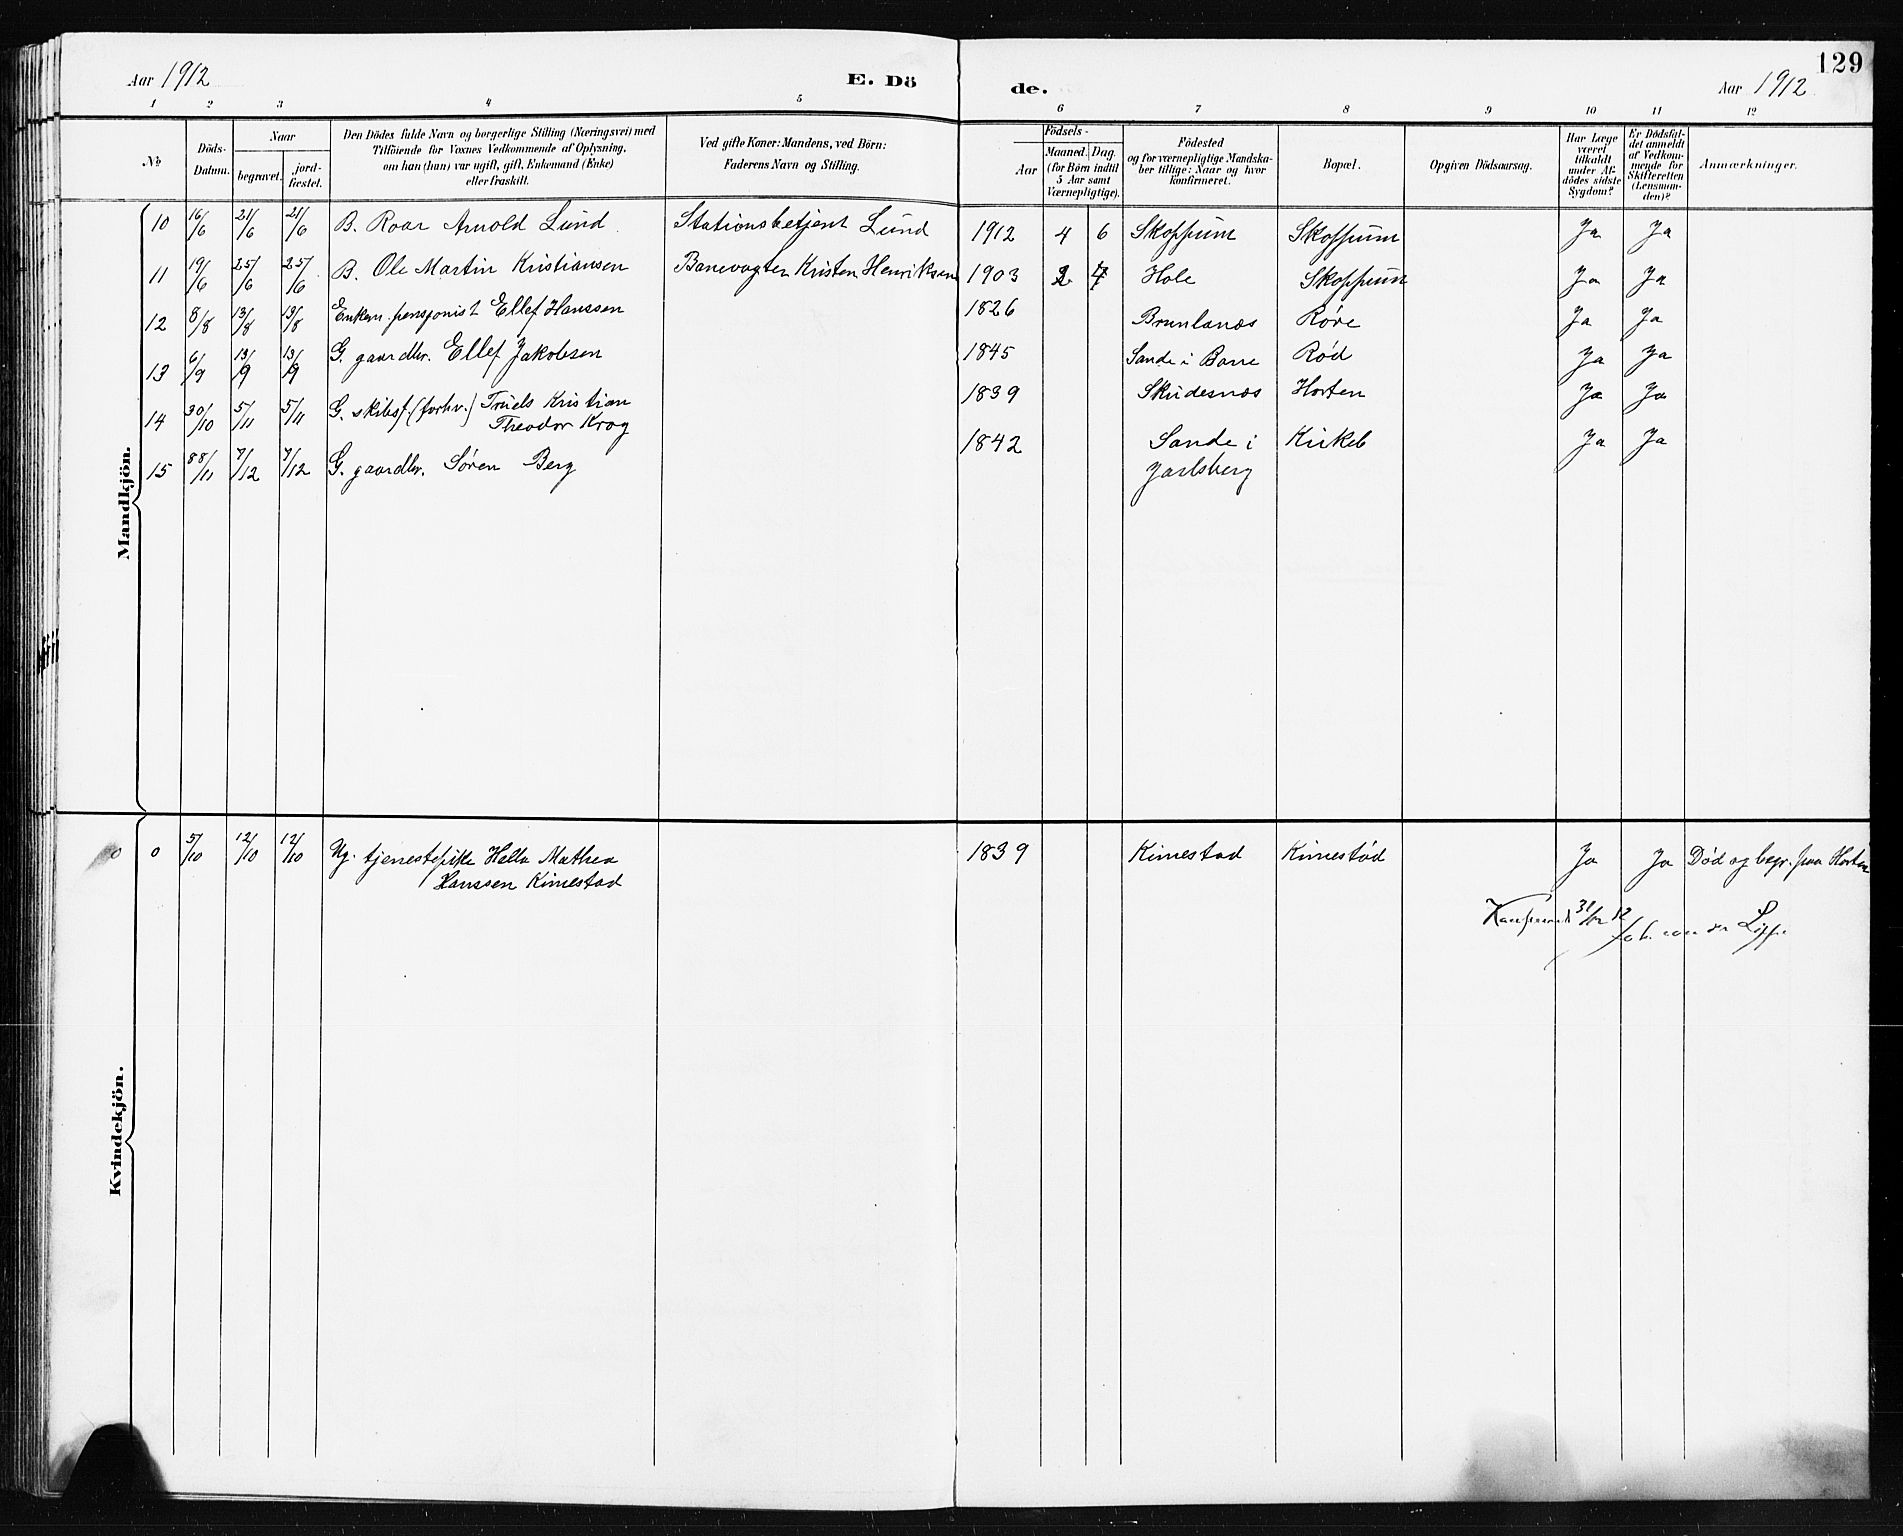 129
Aar 1912 E. Dö de. Aar 1912
1 2 3 4 5 6 7 8 9 10 11 12
No Döds-Datum. Naar begravet. jord-fæstet. Den Dödes fulde Navn og borgerlige Stilling (Næringsvei) med Tilföiende for Voxnes Vedkommende af Oplysning, om han (hun) var ugift, gift, Enkemand (Enke) eller fraskilt. Ved gifte Koner: Mandens, ved Börn: Faderens Navn og Stilling. Födsels- Aar Maaned. Dag. (for Börn indtil 5 Aar samt Værnepligtige). Födested og for værnepligtige Mandska-ber tillige: Naar og hvor konfirmeret. Bopæl. Opgiven Dödsaarsag. Har Læge været tilkaldt under Af-dödes sidste Sygdom? Er Dödsfal-det anmeldt af Vedkom-mende for Skifteretten (Lensman-den)? Anmærkninger.
Mandkjön.
10 16/6 21/6 21/6 B. Roar Arnold Lund Stationsbetjent Lund 1912 4 6 Skoppum Skoppum Ja Ja
11 19/6 25/6 25/6 B. Ole Martin Kristiansen Banevogter Kristen Henriksen 1903 2 4 Hole Skoppum Ja Ja
12 8/8 13/8 13/8 Enkem. pensjonist Ellef Hanssen 1826 Brunlanæs Røre Ja Ja
13 6/9 13/9 13/9 G. gaardbr. Ellef Jakobsen 1845 Sande i Borre Rød Ja Ja
14 30/10 5/11 5/11 G. skibsf. (forhv.) Truels Kristian 1839 Skudesnæs Horten Ja Ja
Theodor Krog
15 28/11 7/12 7/12 G. gaardbr. Søren Berg 1842 Sande i Kirkeb Ja Ja
Jarlsberg
Kvindekjön.
0 0 5/10 12/10 12/10 Ug. tjenestepike Hella Mathea 1839 Kimestad Kimestød Ja Ja Død og begr. paa Horten
Hanssen Kimestad
31/12 12